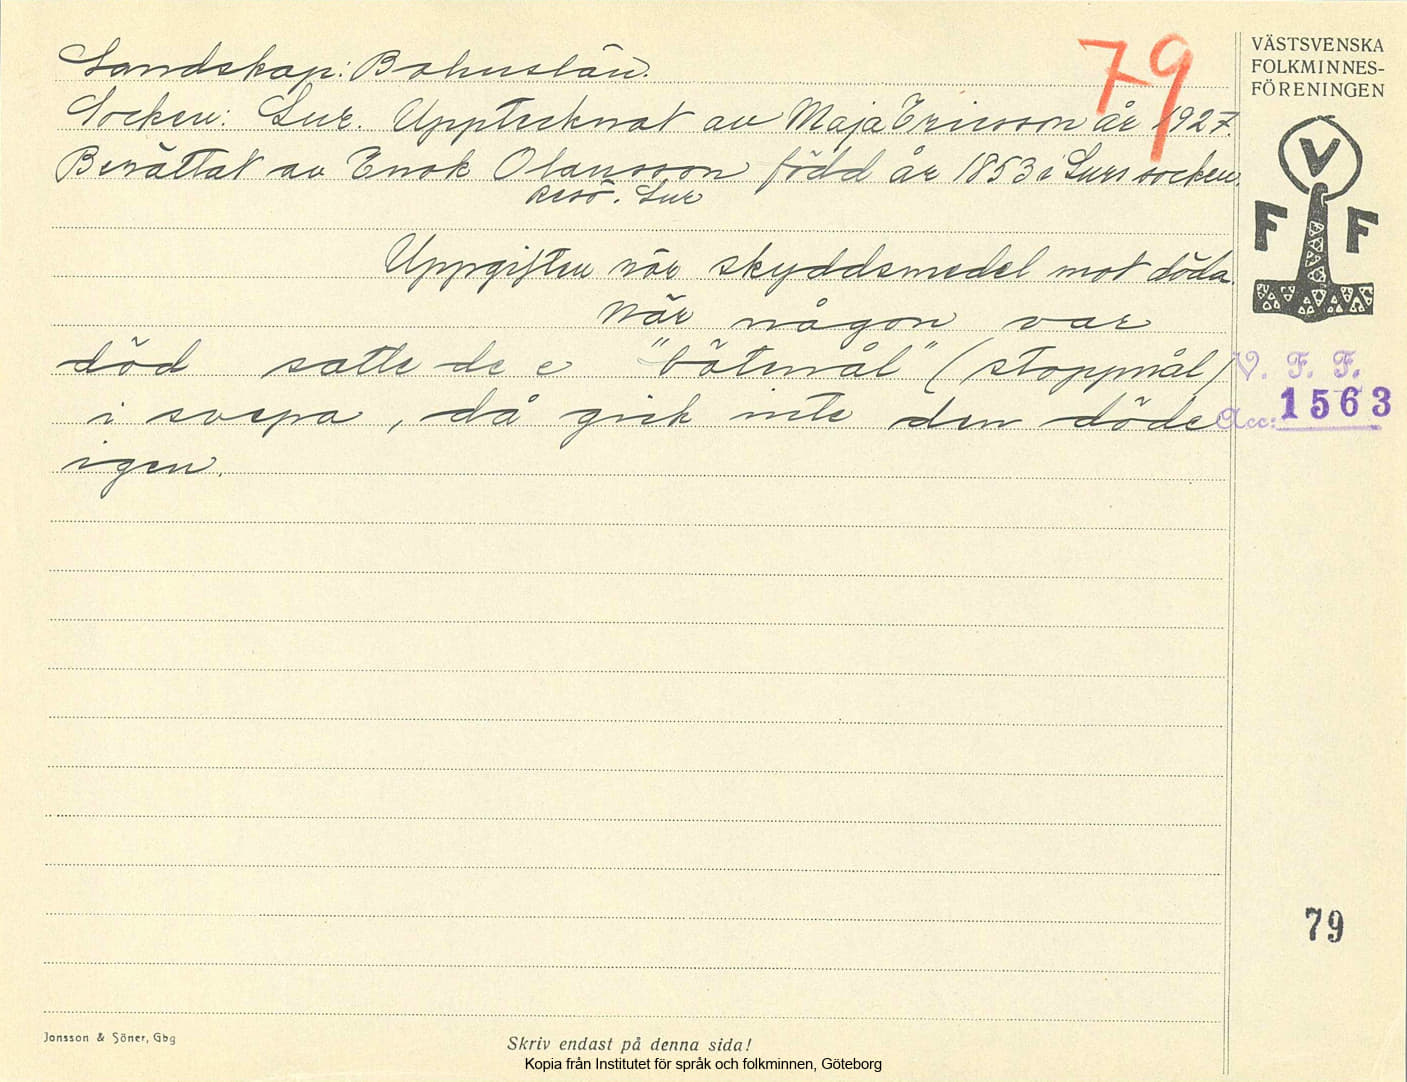 79
Landskap: Bohuslän.
Socken: Lur. Upptecknat av Maja Ericsson år 1927.
Berättat av Enok Olausson född år 1853 i Lurs socken.
Resö. Lur
Uppgifter rör skyddsmedel mot döda.
När någon var
död satte de e "båtmål" (stoppmål)
i svepa, då gick inte den döde
igen.
VÄSTSVENSKA
FOLKMINNES-
FÖRENINGEN
V
F F
V. F. F.
Acc: 1563
79
Jonsson & Söner, Gbg
Skriv endast på denna sida!
Kopia från Institutet för språk och folkminnen, Göteborg